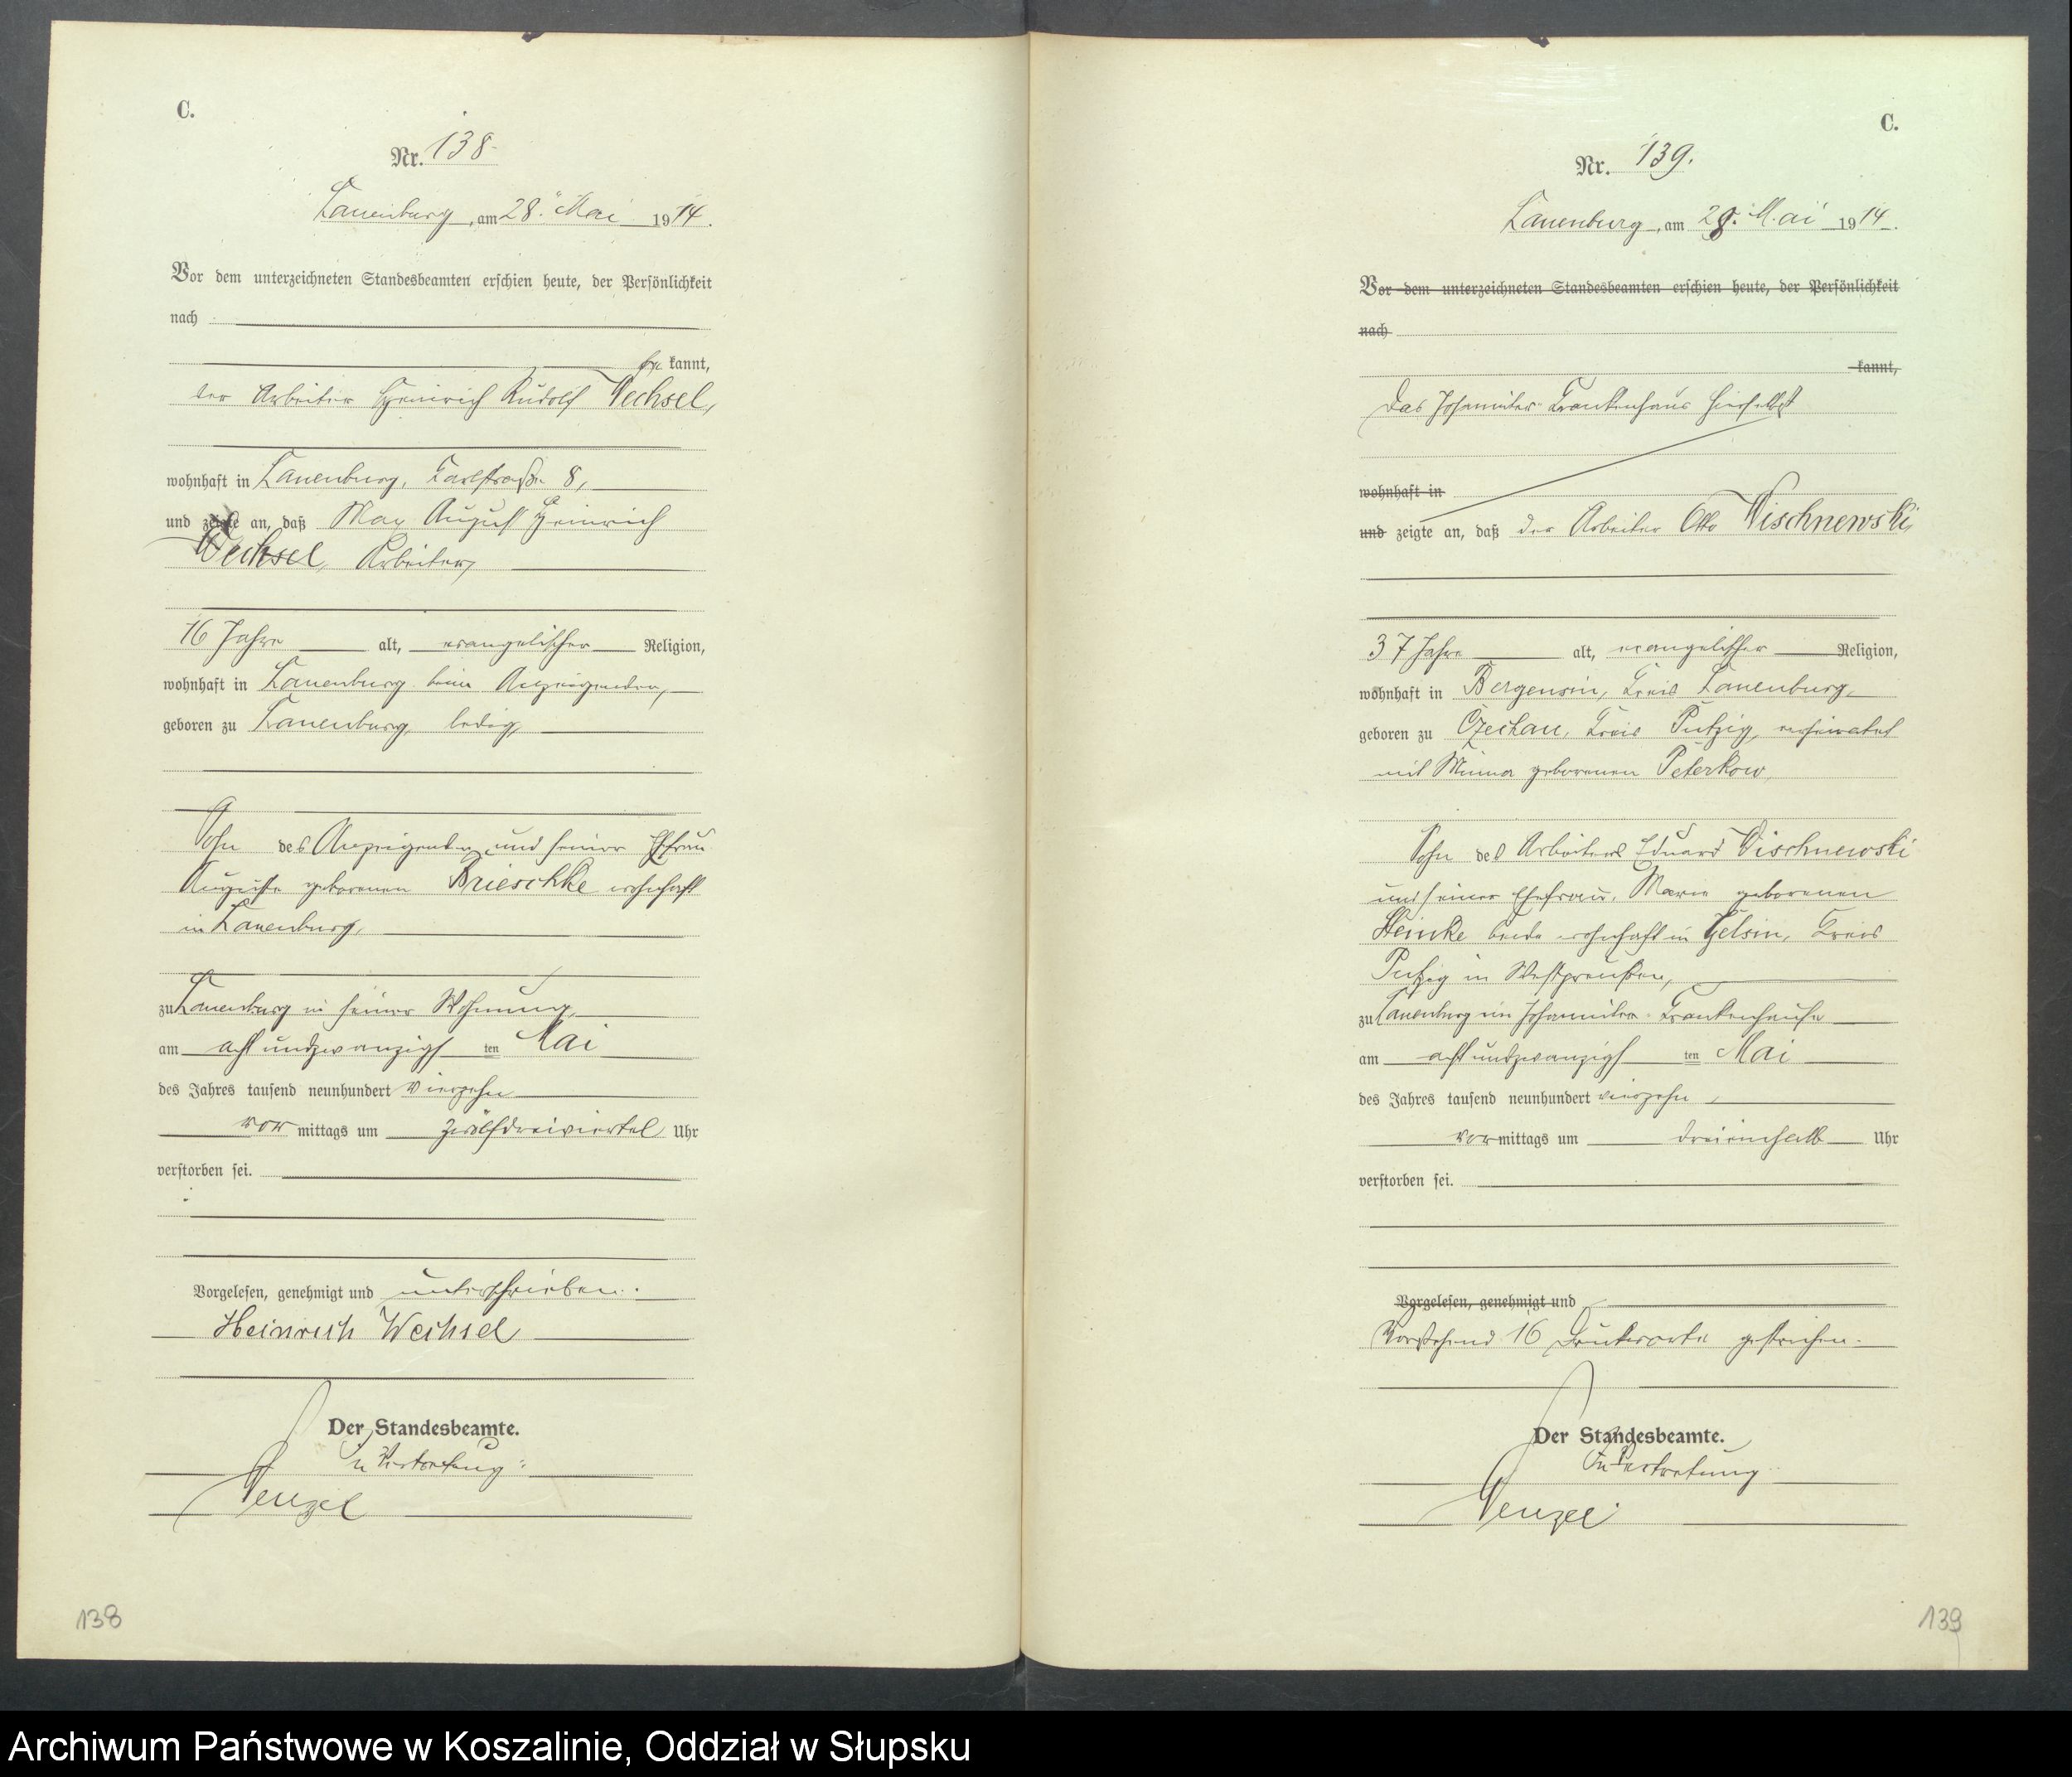 C.
Nr. 138
Lauenburg, am 28. Mai 1914.
Vor dem unterzeichneten Standesbeamten erschien heute, der Persönlichkeit
nach
kannt,
der Arbeiter Heinrich Rudolf Wechsel,
wohnhaft in Lauenburg, Karlstraße 8,
und zeigte an, daß Max August Heinrich
Wechsel, Arbeiter,
16 Jahre alt, evangelischer Religion,
wohnhaft in Lauenburg beim Anzeigenden,
geboren zu Lauenburg, ledig,
Sohn des Anzeigenden und seiner Ehefrau
Auguste geborenen Brieschke wohnhaft
in Lauenburg,
zu Lauenburg in seiner Wohnung,
am acht undzwanzigsten Mai
des Jahres tausend neunhundert vierzehn
vormittags um zwölfdreiviertel Uhr
verstorben sei.
Vorgelesen, genehmigt und unterschrieben.
Heinrich Wechsel
Der Standesbeamte.
In Vertretung:
Wenzel
138
C.
Nr. 139.
Lauenburg, am 28. Mai 1914.
Vor dem unterzeichneten Standesbeamten erschien heute, der Persönlichkeit
nach
kannt,
Das Johanniter-Krankenhaus hierselbst
wohnhaft in
und zeigte an, daß der Arbeiter Otto Wischnewski,
37 Jahre alt, evangelischer Religion,
wohnhaft in Bergensin, Kreis Lauenburg,
geboren zu Czechau, Kreis Putzig, verheiratet
mit Minna geborenen Peterkow,
Sohn des Arbeiters Eduard Wischnewski
und seiner Ehefrau, Marie geborenen
Heinke beide wohnhaft in Gelsin, Kreis
Putzig in Westpreußen,
zu Lauenburg im Johanniter-Krankenhause
am acht undzwanzigsten Mai
des Jahres tausend neunhundert vierzehn,
vormittags um dreieinhalb Uhr
verstorben sei.
Vorgelesen, genehmigt und
Vorstehend 16 Druckworte gestrichen.
Der Standesbeamte.
In Vertretung
Wenzel.
139
Archiwum Państwowe w Koszalinie, Oddział w Słupsku